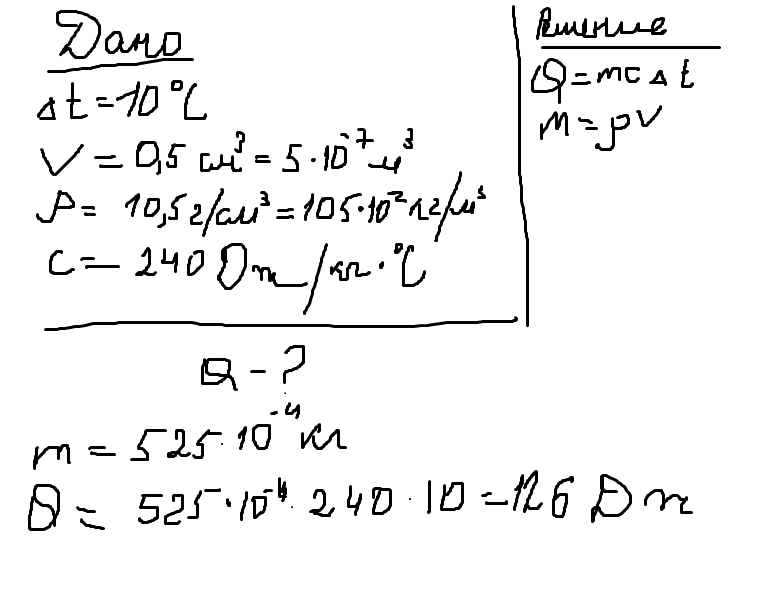 Дано
Δt = 10°C
V = 0,5 см³ = 5·10⁻⁷ м³
ρ = 10,5 г/см³ = 105·10² кг/м³
c = 240 Дж/кг·°C
Q - ?
Решение
Q = mcΔt
m = ρV
m = 525·10⁻⁴ кг
Q = 525·10⁻⁴·240·10 = 126 Дж